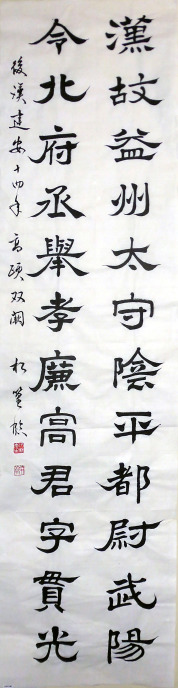 漢故益州太守陰平都尉武陽
令北府丞舉孝廉高君字貫光
後漢建安十四年高頤双闕